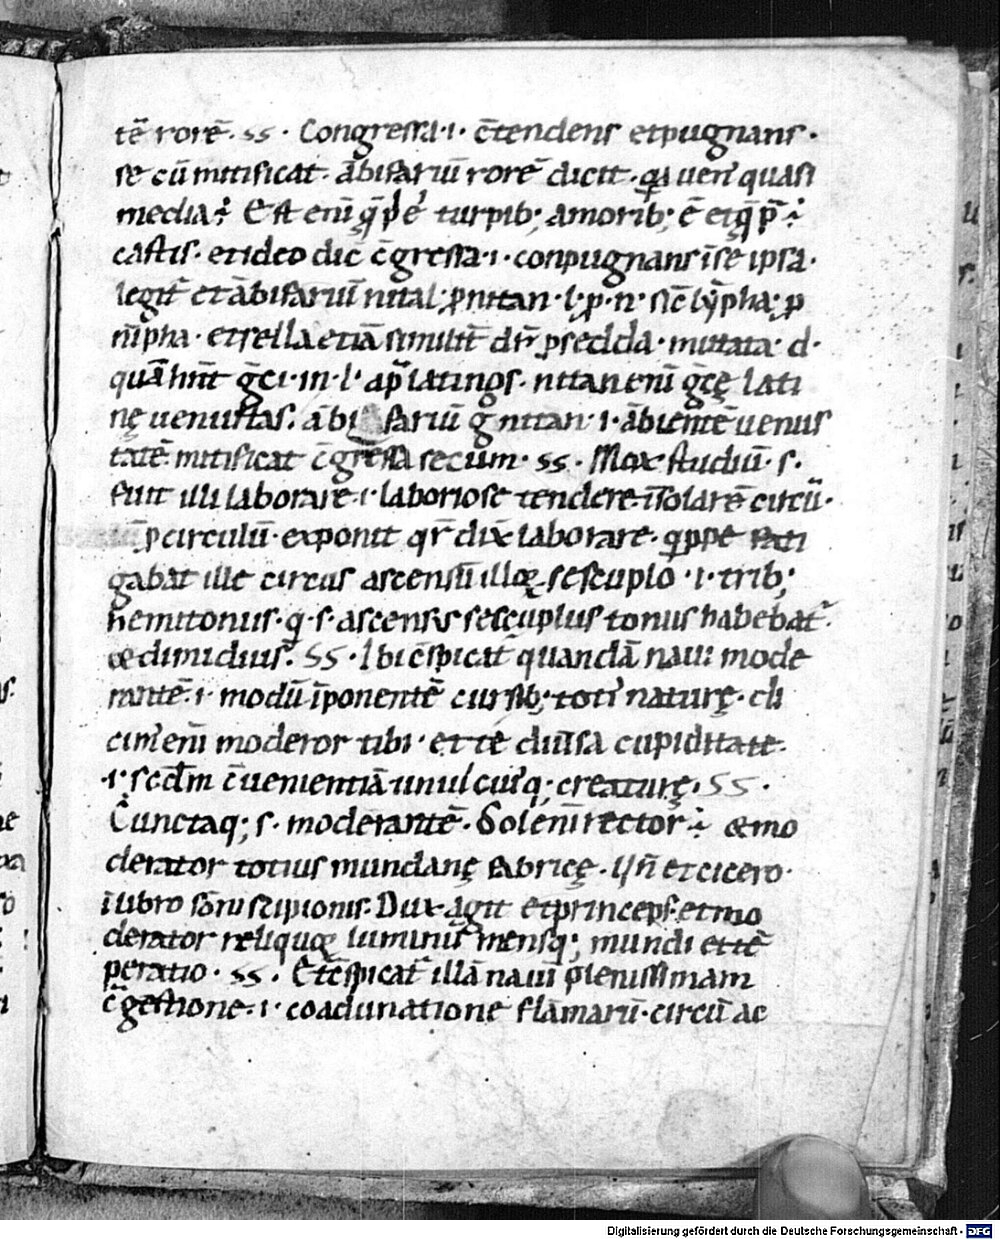 tē rorē. ss. Congressa .i. c̄tendens et pugnans.
se cū mitificat. ābifariū rorē dicit. quasi
media. Est eni turpib; amorib; ē et
castis. et ideo dic̄ c̄gressa .i. conpugnans ī se ipsa.
legit̄ et ābifariū nital. nitan. l. p. n. sic̄ lȳpha. p
nīpha. et sella etiā similit̄ dr̄ p sedda. mutata. d.
quā hn̄t gc̄i. in. l. ap̄ latinos. nitan eni gc̄ę lati
nę uenustas. ābifariū g nitan .i. ābientē uenus
tatē mitificat c̄gressa secum. ss. Mox studiū. s.
fuit illi laborare .i. laboriose tendere ī solarē circū.
p circulū. exponit qr̄ dix̄ laborare. qppe fati
gabat ille circus ascensū illoꝝ sescuplo .i. trib;
hemitoniis. q. s. ascensus sescuplus tonus habebat.
& dimidius. ss. Ibi c̄spicat̄ quandā naui mode
rantē .i. modū īponentē cursib; toti naturę. di
cim̄ eni moderor tibi. et te diūsa cupiditate.
.i. scd̄m c̄uenientiā uniuscuiꝯq; creaturę. ss.
Cunctaq; s. moderantē. Sol enī rector &mo
derator totius mundanę fabricę. Un̄ et cicero.
ī libro sōnii scipionis. Dux ā git et princeps. et mo
derator reliquoꝝ luminū mensq; mundi et tē
peratio. ss. Et c̄spicat̄ illā naui plenissimam
c̄gestione .i. coadunatione flāmarū. circū ac